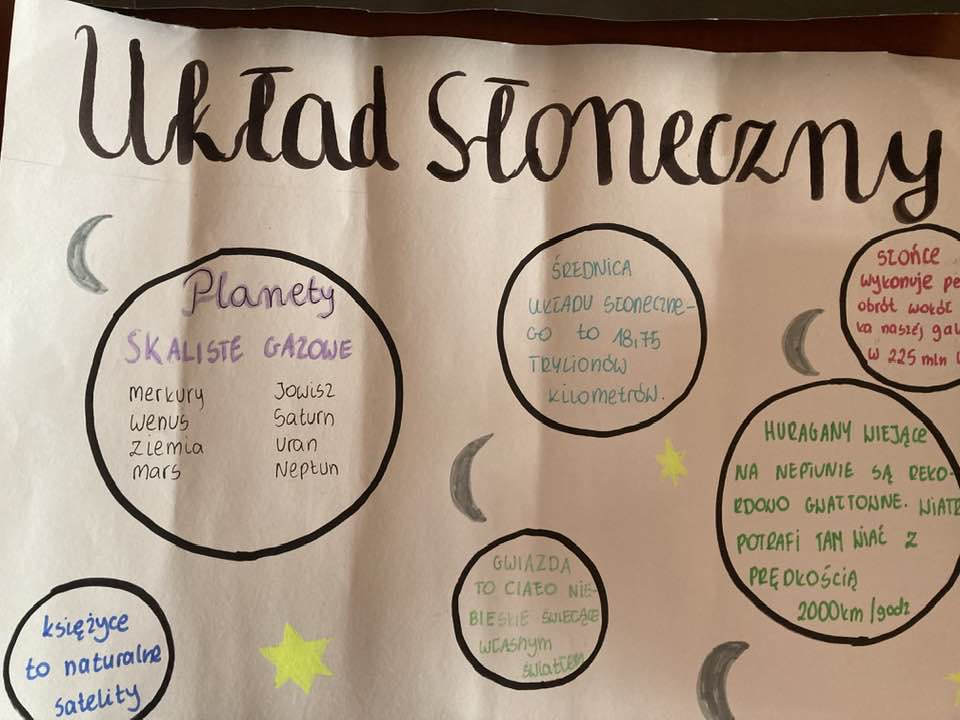 Układ Słoneczny
Planety
SKALISTE GAZOWE
Merkury Jowisz
Wenus Saturn
Ziemia Uran
Mars Neptun
ŚREDNICA
UKŁADU SŁONECZNE-
GO to 18,75
TRYLIONÓW
kilometrów.
SŁOŃCE
wykonuje
obrót wokół
naszej
w 225 mln
HURAGANY WIEJĄCE
NA NEPTUNIE SĄ REKO-
RDOWO GWAŁTOWNE. WIATR
POTRAFI TAM WIAĆ Z
PRĘDKOŚCIĄ
2000km/godz
GWIAZDA
TO CIAŁO NIE-
BIESKIE ŚWIECĄCE
WŁASNYM
światłem
księżyce
to naturalne
satelity